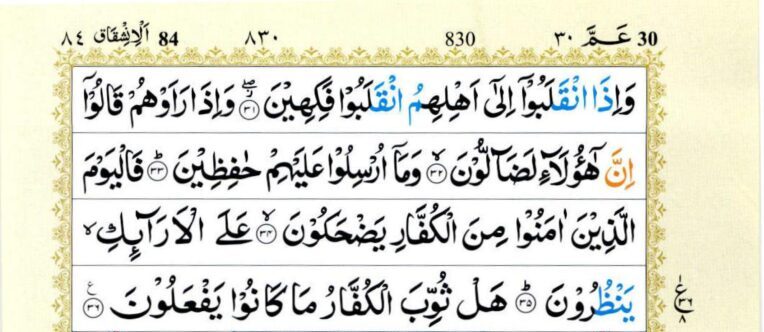 30 عَـمَّ ٣٠ 830 ٨٣٠ 84 اَلْاِنْشِقَاق ٨٤
وَاِذَا انْقَلَبُوْۤا اِلٰۤى اَهْلِهِمُ انْقَلَبُوْا فَكِهِيْنَ ۖ ۝٣١ وَاِذَا رَاَوْهُمْ قَالُوْۤا
اِنَّ هٰۤؤُلَآءِ لَضَآلُّوْنَ ۙ ۝٣٢ وَمَاۤ اُرْسِلُوْا عَلَيْهِمْ حٰفِظِيْنَ ؕ ۝٣٣ فَالْيَوْمَ
الَّذِيْنَ اٰمَنُوْا مِنَ الْكُفَّارِ يَضْحَكُوْنَ ۙ ۝٣٤ عَلَى الْاَرَآئِكِ ۙ
يَنْظُرُوْنَ ؕ ۝٣٥ هَلْ ثُوِّبَ الْكُفَّارُ مَا كَانُوْا يَفْعَلُوْنَ ۝٣٦ ع
ع ٣٦ ٨